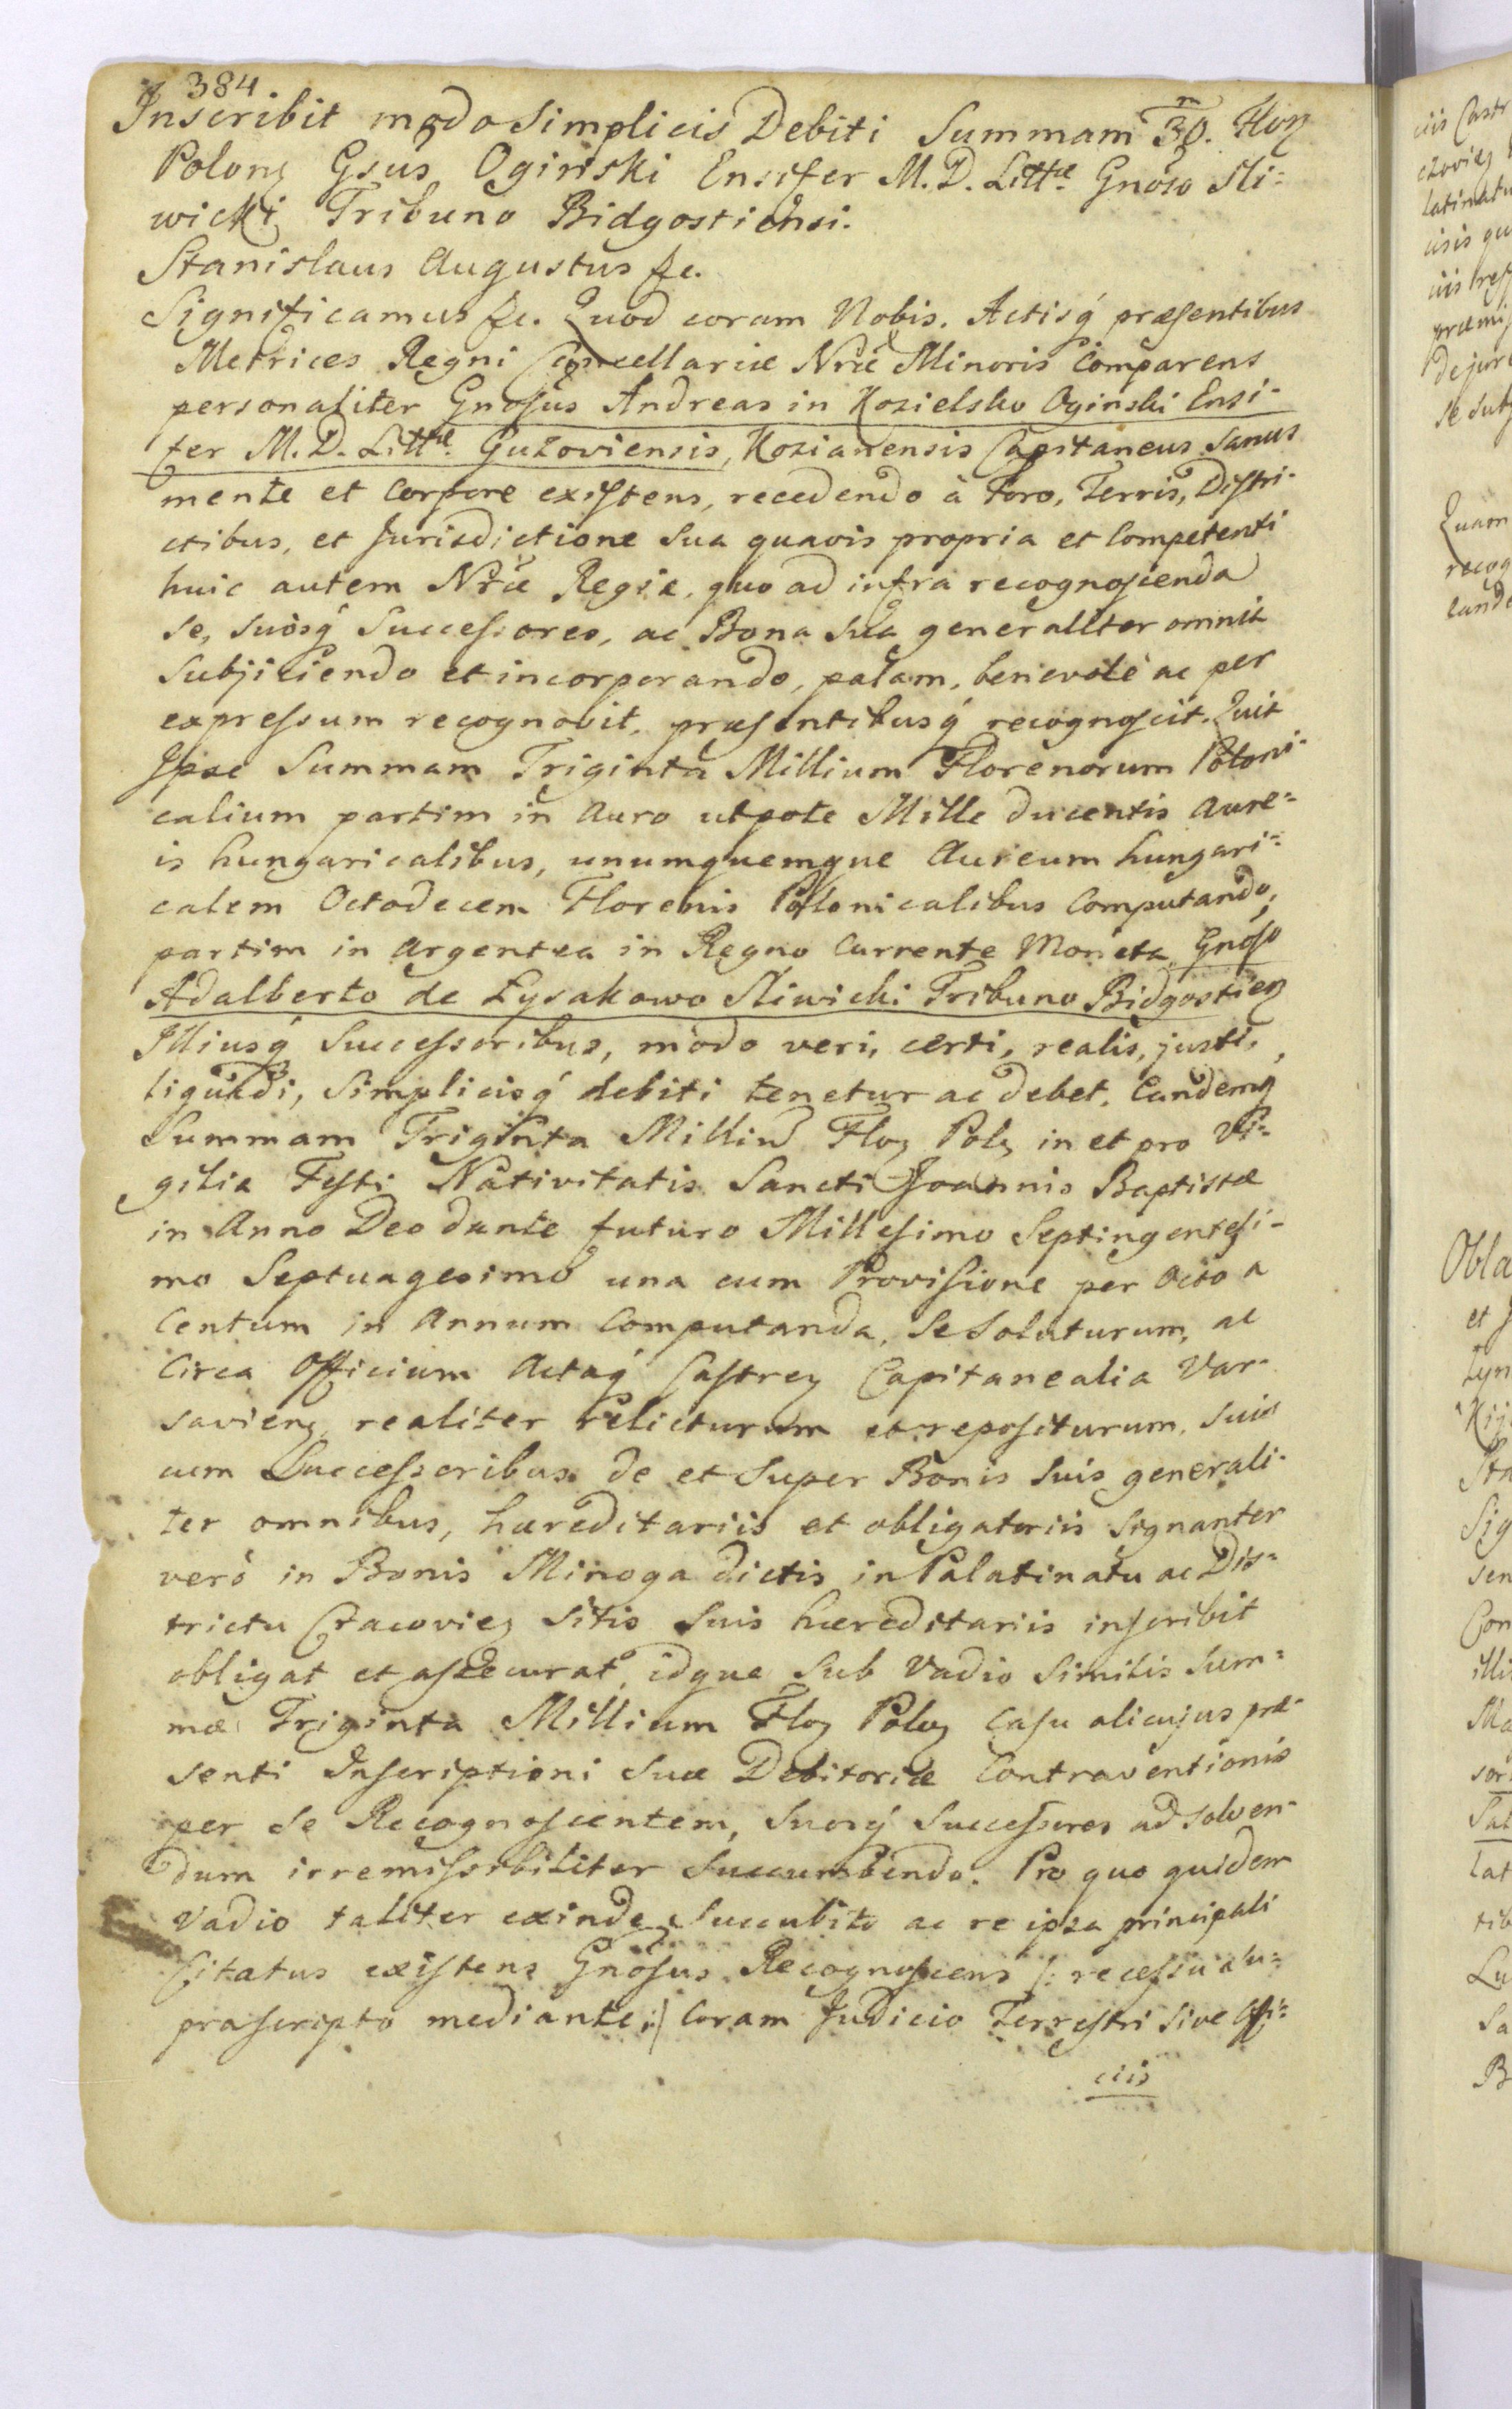 384
Inscribit modo Simplicis Debiti Summam 30. Flor
Polon Gsus Oginski Ensifer M. D. Littæ. Gnoso Sli-
wicki Tribuno Bidgostiensi.
Stanislaus Augustus &c.
Significamus &c. Quod coram Nobis. Actisq præsentibus
Metrices Regni Cancellariæ Nræ Minoris Comparens
personaliter Gnosus Andreas in Kozielsko Oginski Ensi-
fer M. D. Littæ. Guzoviensis, Kozianensis Capitaneus sanus
mente et Corpore existens, recedendo à Foro, Terris, Distri-
ctibus, et Jurisdictione sua quavis propria et Competenti
huic autem Nræ Regiæ, quo ad infra recognoscenda
se, suosq Successores, ac Bona sua generaliter omnia
Subjiciendo et incorporando, palam, benevolè ac per
expressum recognovit, præsentibusq recognoscit. Quia
Ipse Summam Triginta Millium Florenorum Poloni-
calium partim in Auro utpote Mille ducentis Aure-
is hungaricalibus, unumquemque Aureum hungari-
calem Octodecem Florenis Polonicalibus Computando,
partim in Argentea in Regno Currente Moneta, Gnoso
Adalberto de Łysakowo Sliwicki Tribuno Bidgostien
Illiusq Successoribus, modo veri, certi, realis, justi,
liquidi, Simplicisq debiti tenetur ac debet. Eandemq
Summam Triginta Milliu Flo Pol in et pro Vi-
gilia Festi Nativitatis Sancti Joannis Baptistæ
in Anno Deo dante futuro Millesimo Septingentesi-
mo Septuagesimo una cum Provisione per Octo a
Centum in Annum Computanda, Se Soluturum, ac
Circa Officium Actaq Castren Capitanealia Var-
savien realiter relicturum et repositurum, suis
cum Successoribus de et Super Bonis Suis generali-
ter omnibus, hæreditariis et obligatoriis Signanter
verò in Bonis Minoga dictis in Palatinatu ac Dis-
trictu Cracovien Sitis Suis hæreditariis inscribit
obligat et assecurat, idque Sub Vadio Similis Sum-
mæ Triginta Millium Flo Polo Casu alicujus præ-
senti Inscriptioni Suæ Debitoriæ Contraventionis
per se Recognoscentem, Suosq Successores ad solven-
dum irremissibiliter Succumbendo. Pro quo quidem
Vadio taliter exinde Succubito ac re ipsa principali
Citatus existens Gnosus Recognoscens /: recessu a Su-
prascripto mediante :/ Coram Judicio Terrestri Sive Offi-
ciis